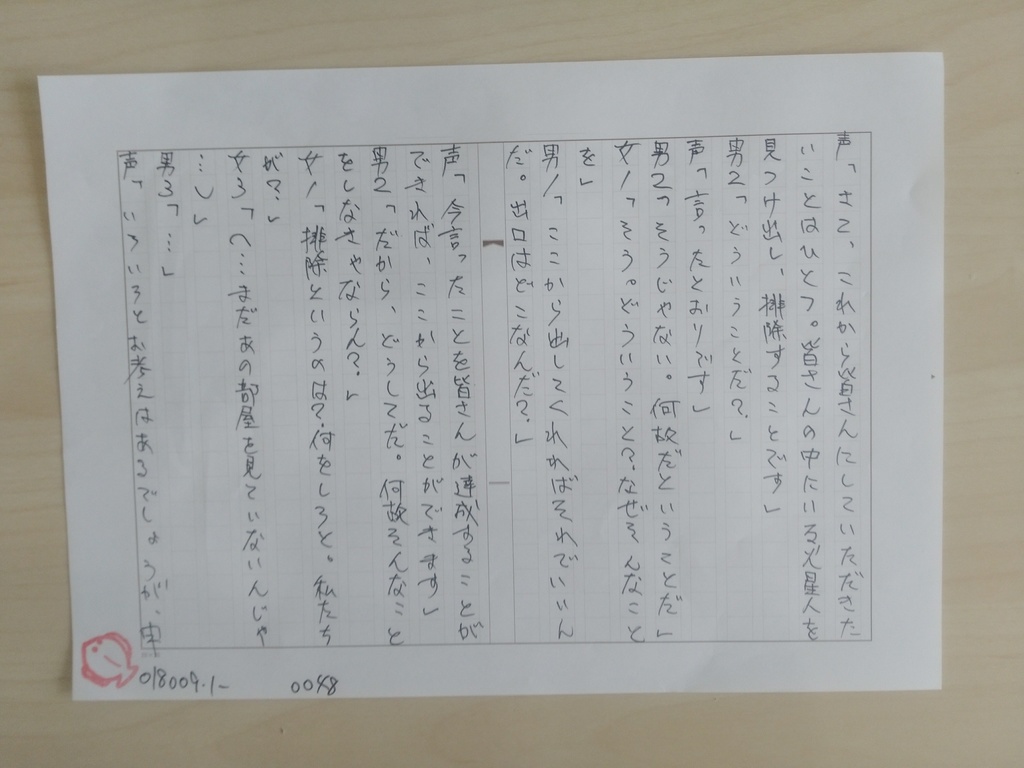 声「さて、これから皆さんにしていただきた
いことはひとつ。皆さんの中にいる火星人を
見つけ出し、排除することです」
男2「どういうことだ?」
声「言ったとおりです」
男2「そうじゃない。何故だということだ」
女1「そう。どういうこと?なぜそんなこと
を」
男1「ここから出してくれればそれでいいん
だ。出口はどこなんだ?」
声「今言ったことを皆さんが達成することが
できれば、ここから出ることができます」
男2「だから、どうしてだ。何故そんなこと
をしなきゃならん?」
女1「排除というのは?何をしろと。私たち
が?」
女3「(…まだあの部屋を見ていないんじゃ
…)」
男3「…」
声「いろいろとお考えはあるでしょうが、実
018009-1-
0048